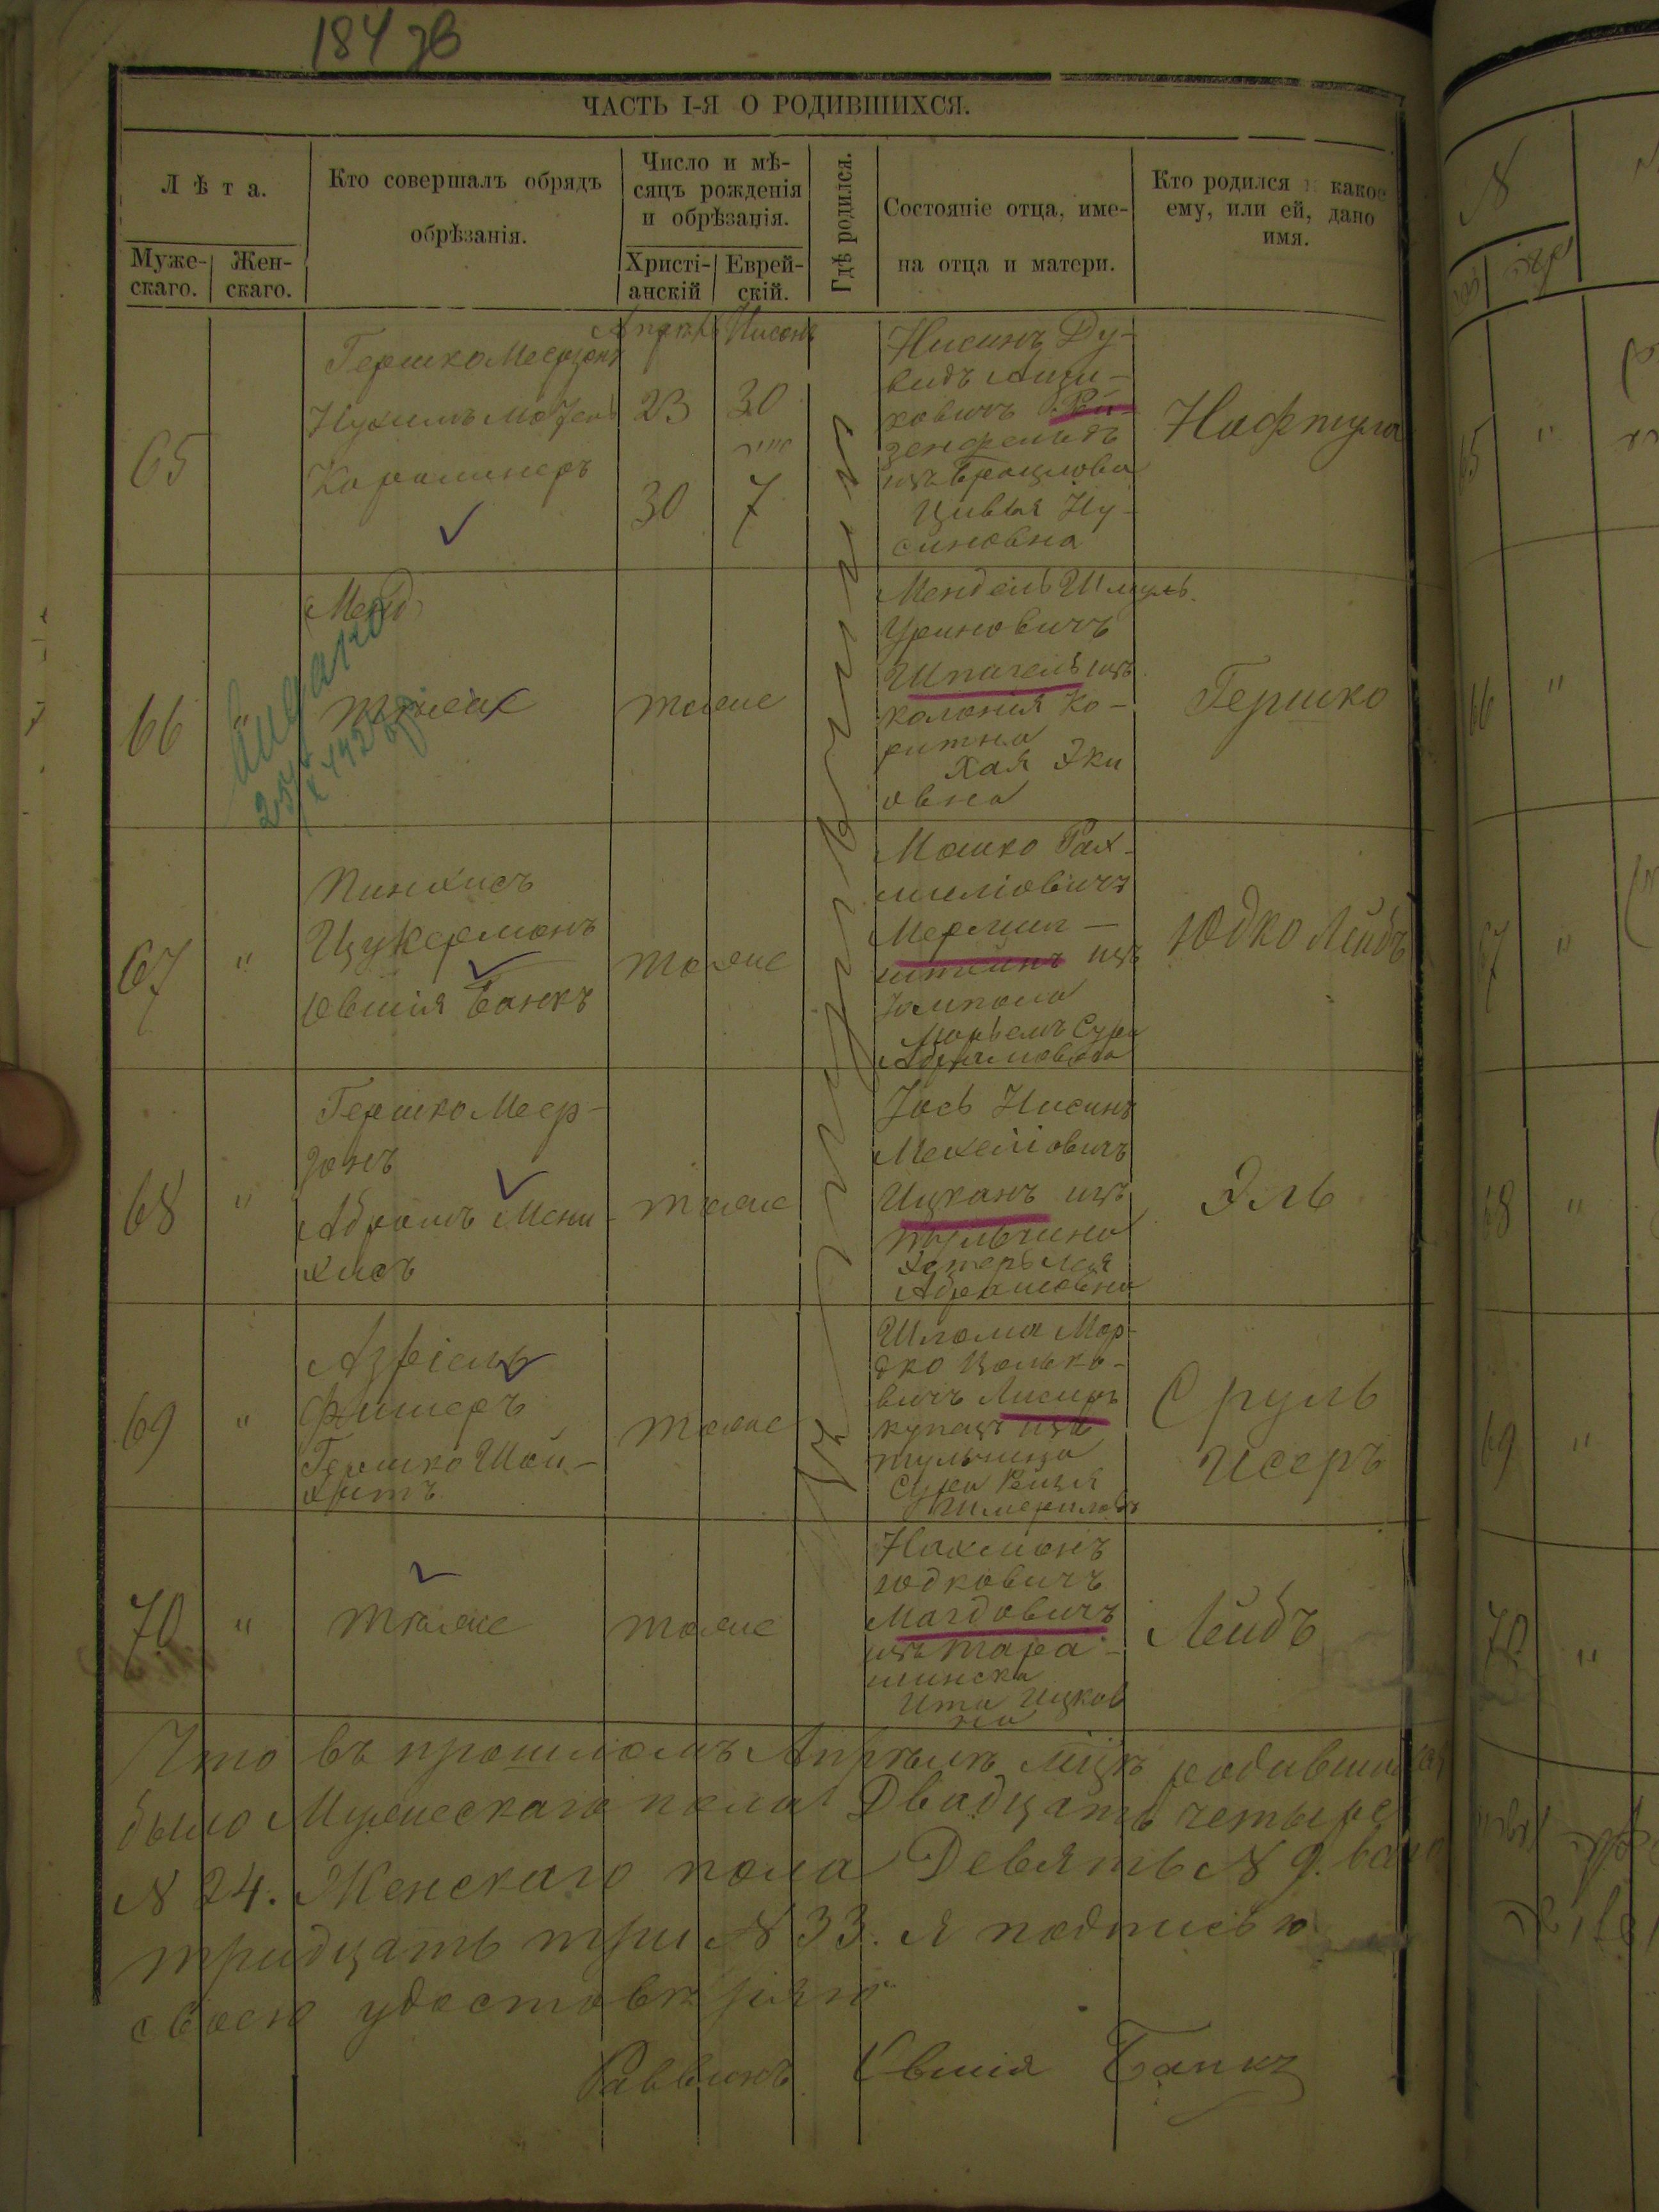 184 зв
ЧАСТЬ I-Я О РОДИВШИХСЯ.
Лѣта.
Муже-
скаго.
Жен-
скаго.
Кто совершалъ обрядъ
обрѣзанія.
Число и мѣ-
сяцъ рожденія
и обрѣзанія.
Христі-
анскій
Еврей-
скій.
Гдѣ родился.
Состояніе отца, име-
на отца и матери.
Кто родился и какое
ему, или ей, дано
имя.
65
Гершко Меерзонъ
Нухимъ
Апрѣль
23
30
Нисонъ
30
7
Нисинъ Ду-
видъ Ици-
ковичъ Рей-
зенфельдъ
изъ Брацлова
Цивья Ну-
синовна
Нафтула
66
"
Менд
тоже
выдано
тоже
Мендель Шмуль
Уриновичъ
Шпигель изъ
колонія Ко-
ритна
Хая Эки
овна
Гершко
67
"
Пинхисъ
Цукермонъ
Овшія Банкъ
тоже
Мошко Рах-
миліовичъ
штейнъ изъ
Ямполя
Сура
Абрамовна
Юдко Лейбъ
68
"
Гершко Меер-
зонъ
Абромъ Мени-
хисъ
тоже
Іось Нисинъ
Мехеліовичъ
Ицканъ изъ
Тульчина
Эстеръ Лея
Абрамовна
Эль
69
"
Азріель
Фишеръ
Гершко Шой-
хетъ
тоже
Шлома Мор-
дко Цолько-
вичъ Лисыръ
купецъ изъ
Тульчина
Сура Рейзя
Сруль
Исеръ
70
"
тоже
тоже
Нахмонъ
Юдковичъ
Магдовичъ
изъ Тара-
щинска
Ита Ицков
на
Лейбъ
Что въ прошломъ Апрѣлѣ мцѣ родившихся
было Мужескаго пола Двадцать четыре
N 24. Женскаго пола Девять N 9. всего
тридцать три N 33. Я подписью
своею удостовѣряю
Раввинъ Овшія Банкъ